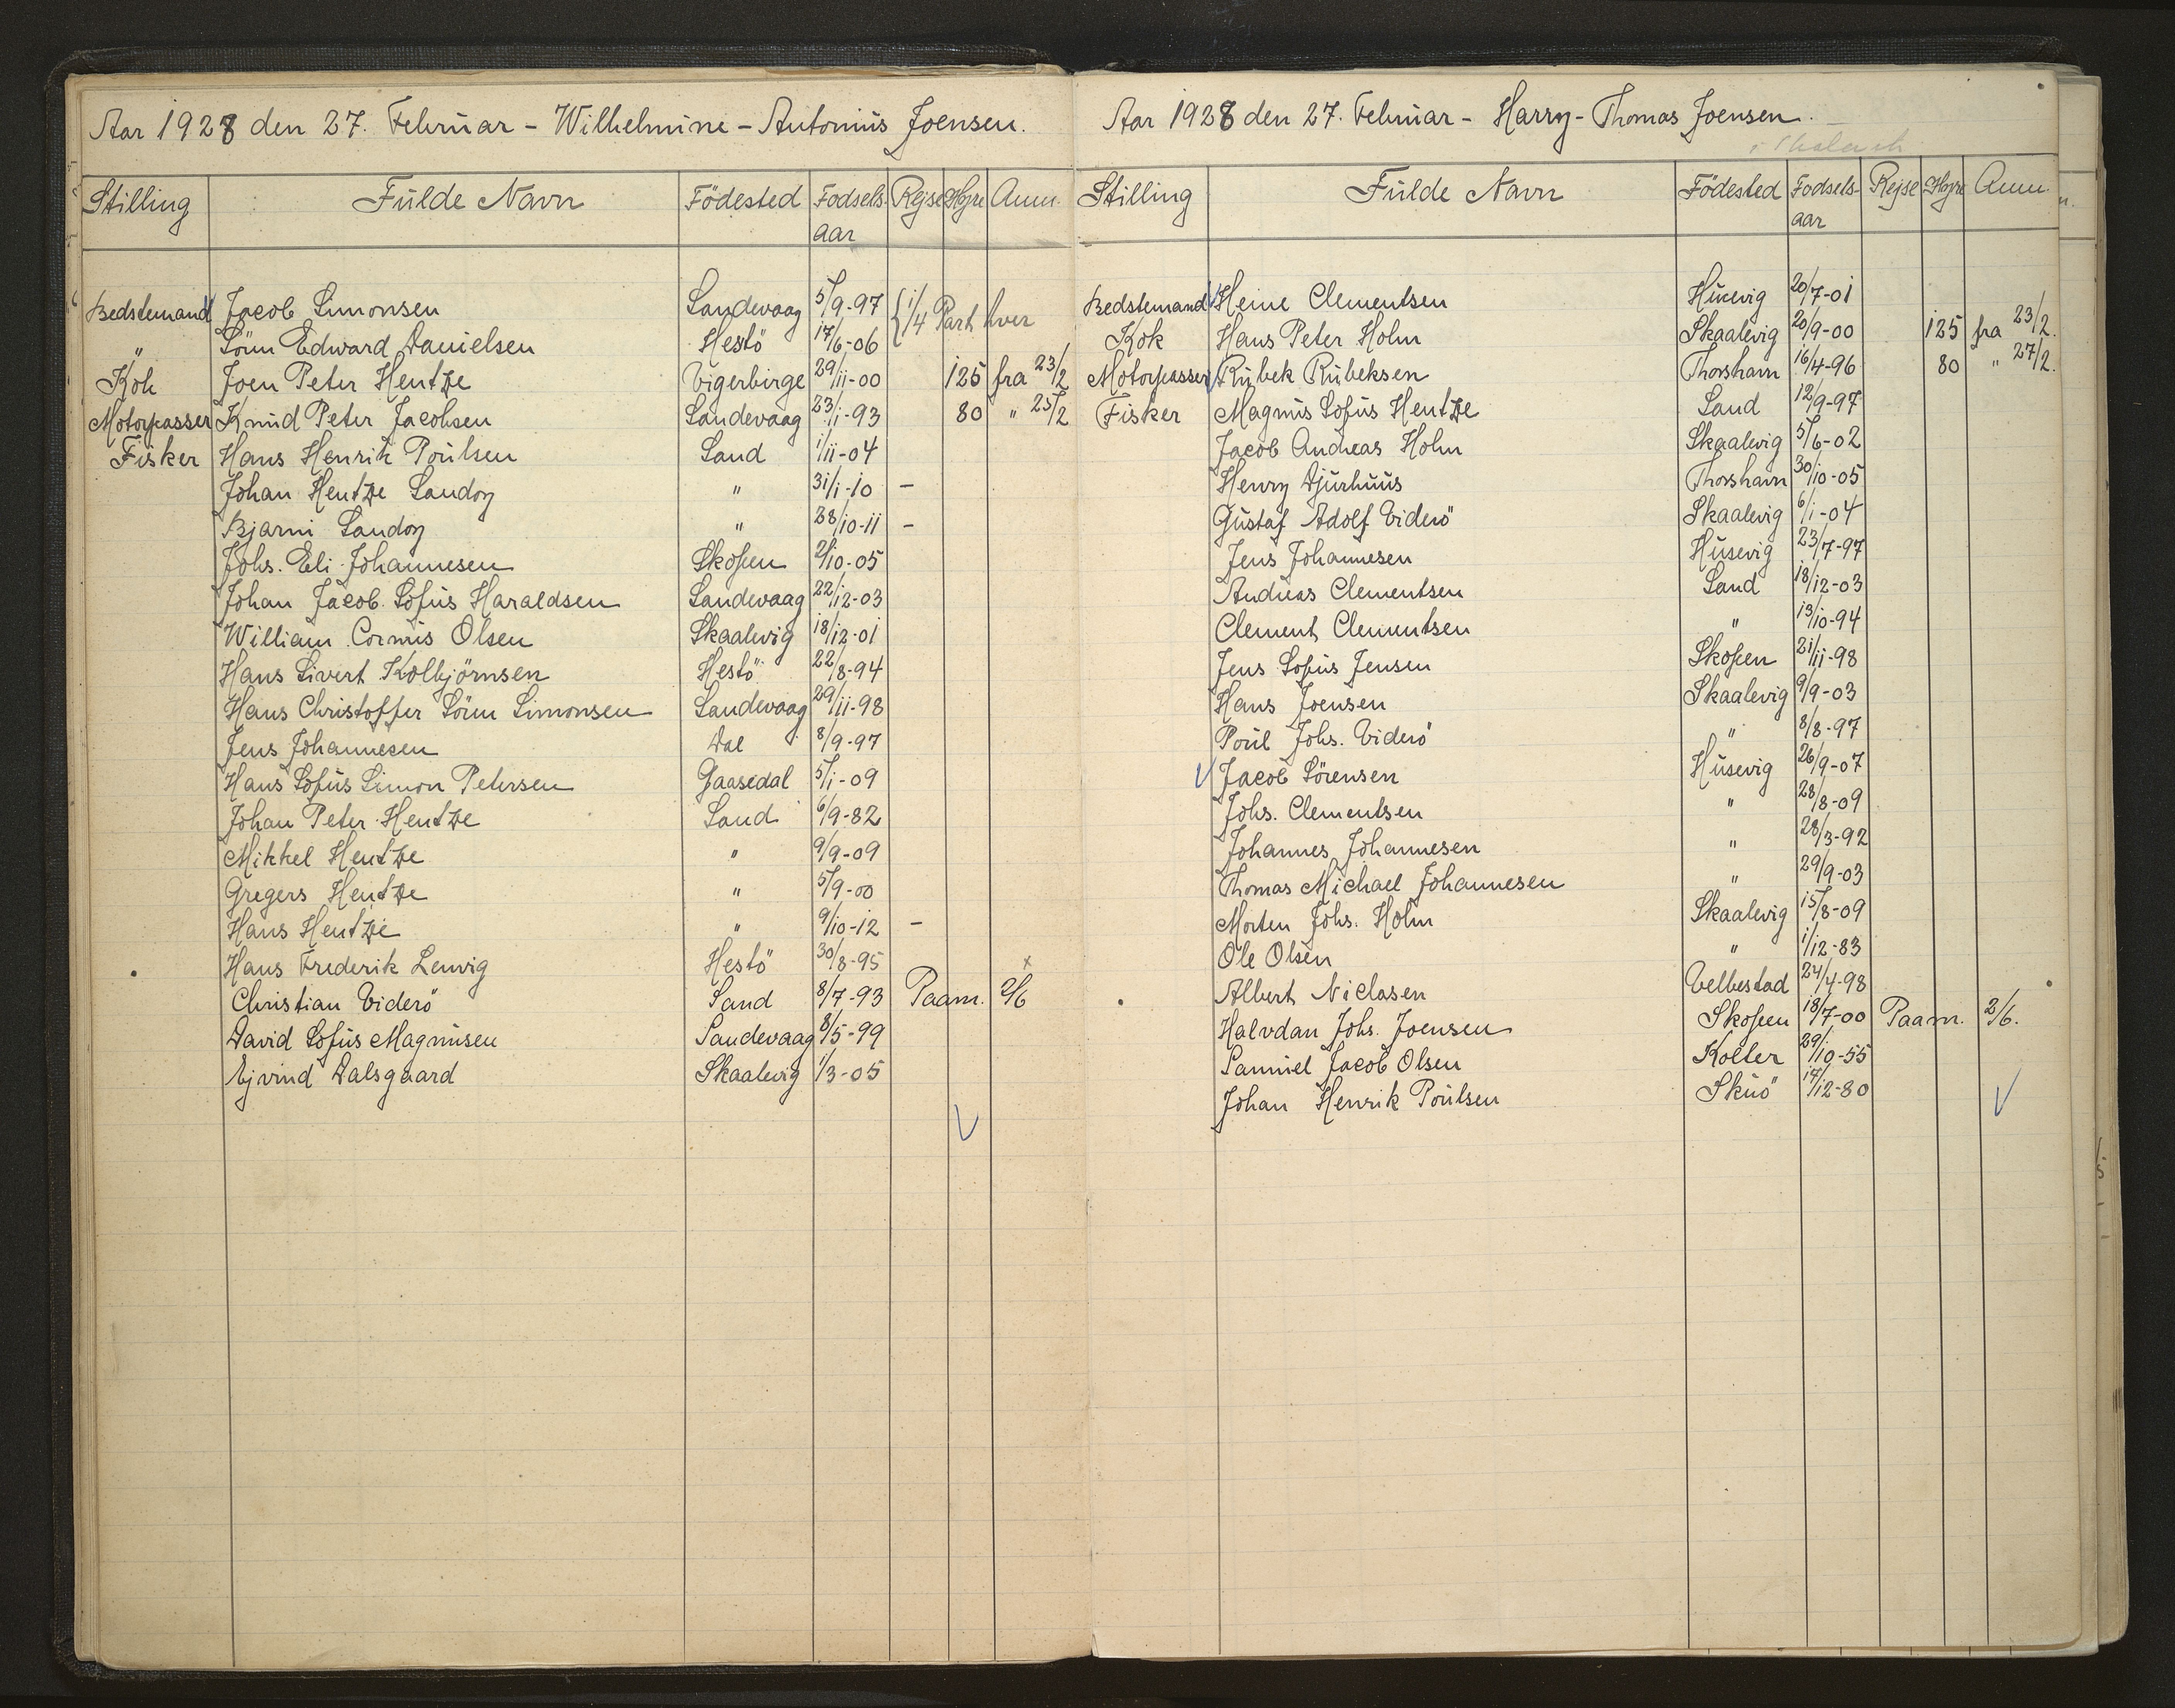 Aar 1928 den 27. Februar - Wilhelmine - Antonius Joensen.
Stilling Fulde Navn Födested Fodsels-aar Rejse Hyre Anm.
Bedstemand Jacob Simonsen Sandevaag 5/9-97 1/4 Part hver
" Sönn Edward Danielsen Hestö 17/6-06
Kok Joen Peter Hentze Vigerbirge 29/11-00 125 fra 23/2
Motorpasser Knud Peter Jacobsen Sandevaag 23/1-93 80 " 25/2
Fisker Hans Henrik Poulsen Sand 1/11-04
Johan Hentze Sandoy " 31/1-10 -
Bjarni Sandoy " 28/10-11 -
Johs. Eli Johannesen Skopen 2/10-05
Johan Jacob Sofus Haraldsen Sandevaag 22/12-03
William Cornus Olsen Skaalevig 18/12-01
Hans Sivert Kolbjörnsen Hestö 22/8-94
Hans Christoffer Sönn Simonsen Sandevaag 29/11-98
Jens Johannesen Dal 8/9-97
Hans Sofus Simon Petersen Gaasedal 5/1-09
Johan Peter Hentze Sand 6/9-82
Mikkel Hentze " 9/9-09
Gregers Hentze " 5/9-00
Hans Hentze " 9/10-12 -
Hans Frederik Lenvig Hestö 30/8-95 x
Christian Viderö Sand 8/7-93 Paam. 2/6
David Sofus Magnusen Sandevaag 8/5-99
Ejvind Dalsgaard Skaalevig 1/3-05
Aar 1928 den 27. Februar - Harry - Thomas Joensen.
Stilling Fulde Navn Födested Fodsels-aar Rejse Hyre Anm.
Bedstemand Heine Clementsen Husevig 20/7-01
Kok Hans Peter Holm Skaalevig 20/9-00 125 fra 23/2.
Motorpasser Rubek Rubeksen Thorshavn 16/4-96 80 " 27/2.
Fisker Magnus Sofus Hentze Sand 12/9-97
Jacob Andreas Holm Skaalevig 5/6-02
Henry Djurhuus Thorshavn 30/10-05
Gustaf Adolf Viderö Skaalevig 6/1-04
Jens Johannesen Husevig 23/7-97
Andreas Clementsen Sand 18/12-03
Clement Clementsen " 13/10-94
Jens Sofus Jensen Skopen 21/11-98
Hans Joensen Skaalevig 9/9-03
Poul Johs. Viderö " 8/8-97
Jacob Sörensen Husevig 26/9-07
Johs. Clementsen " 28/8-09
Johannes Johannesen " 28/3-92
Thomas Michael Johannesen " 29/9-03
Morten Johs. Holm Skaalevig 15/8-09
Ole Olsen " 1/12-83
Albert Niclasen Velbestad 24/4-98
Halvdan Johs. Joensen Skopen 18/7-00 Paam. 2/6.
Samuel Jacob Olsen Kolter 29/10-55
Johan Henrik Poulsen Skuö 17/12-80